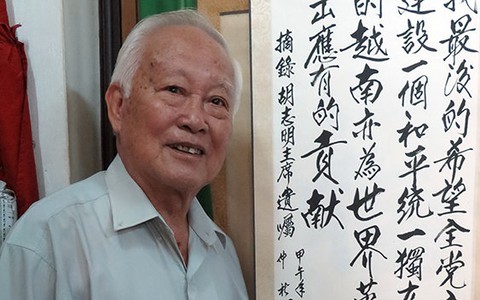 我最後的希望全党
建設一個和平統一獨立
的越南亦為世界革
出應有的貢献
摘錄胡志明主席遺囑
甲午年仲